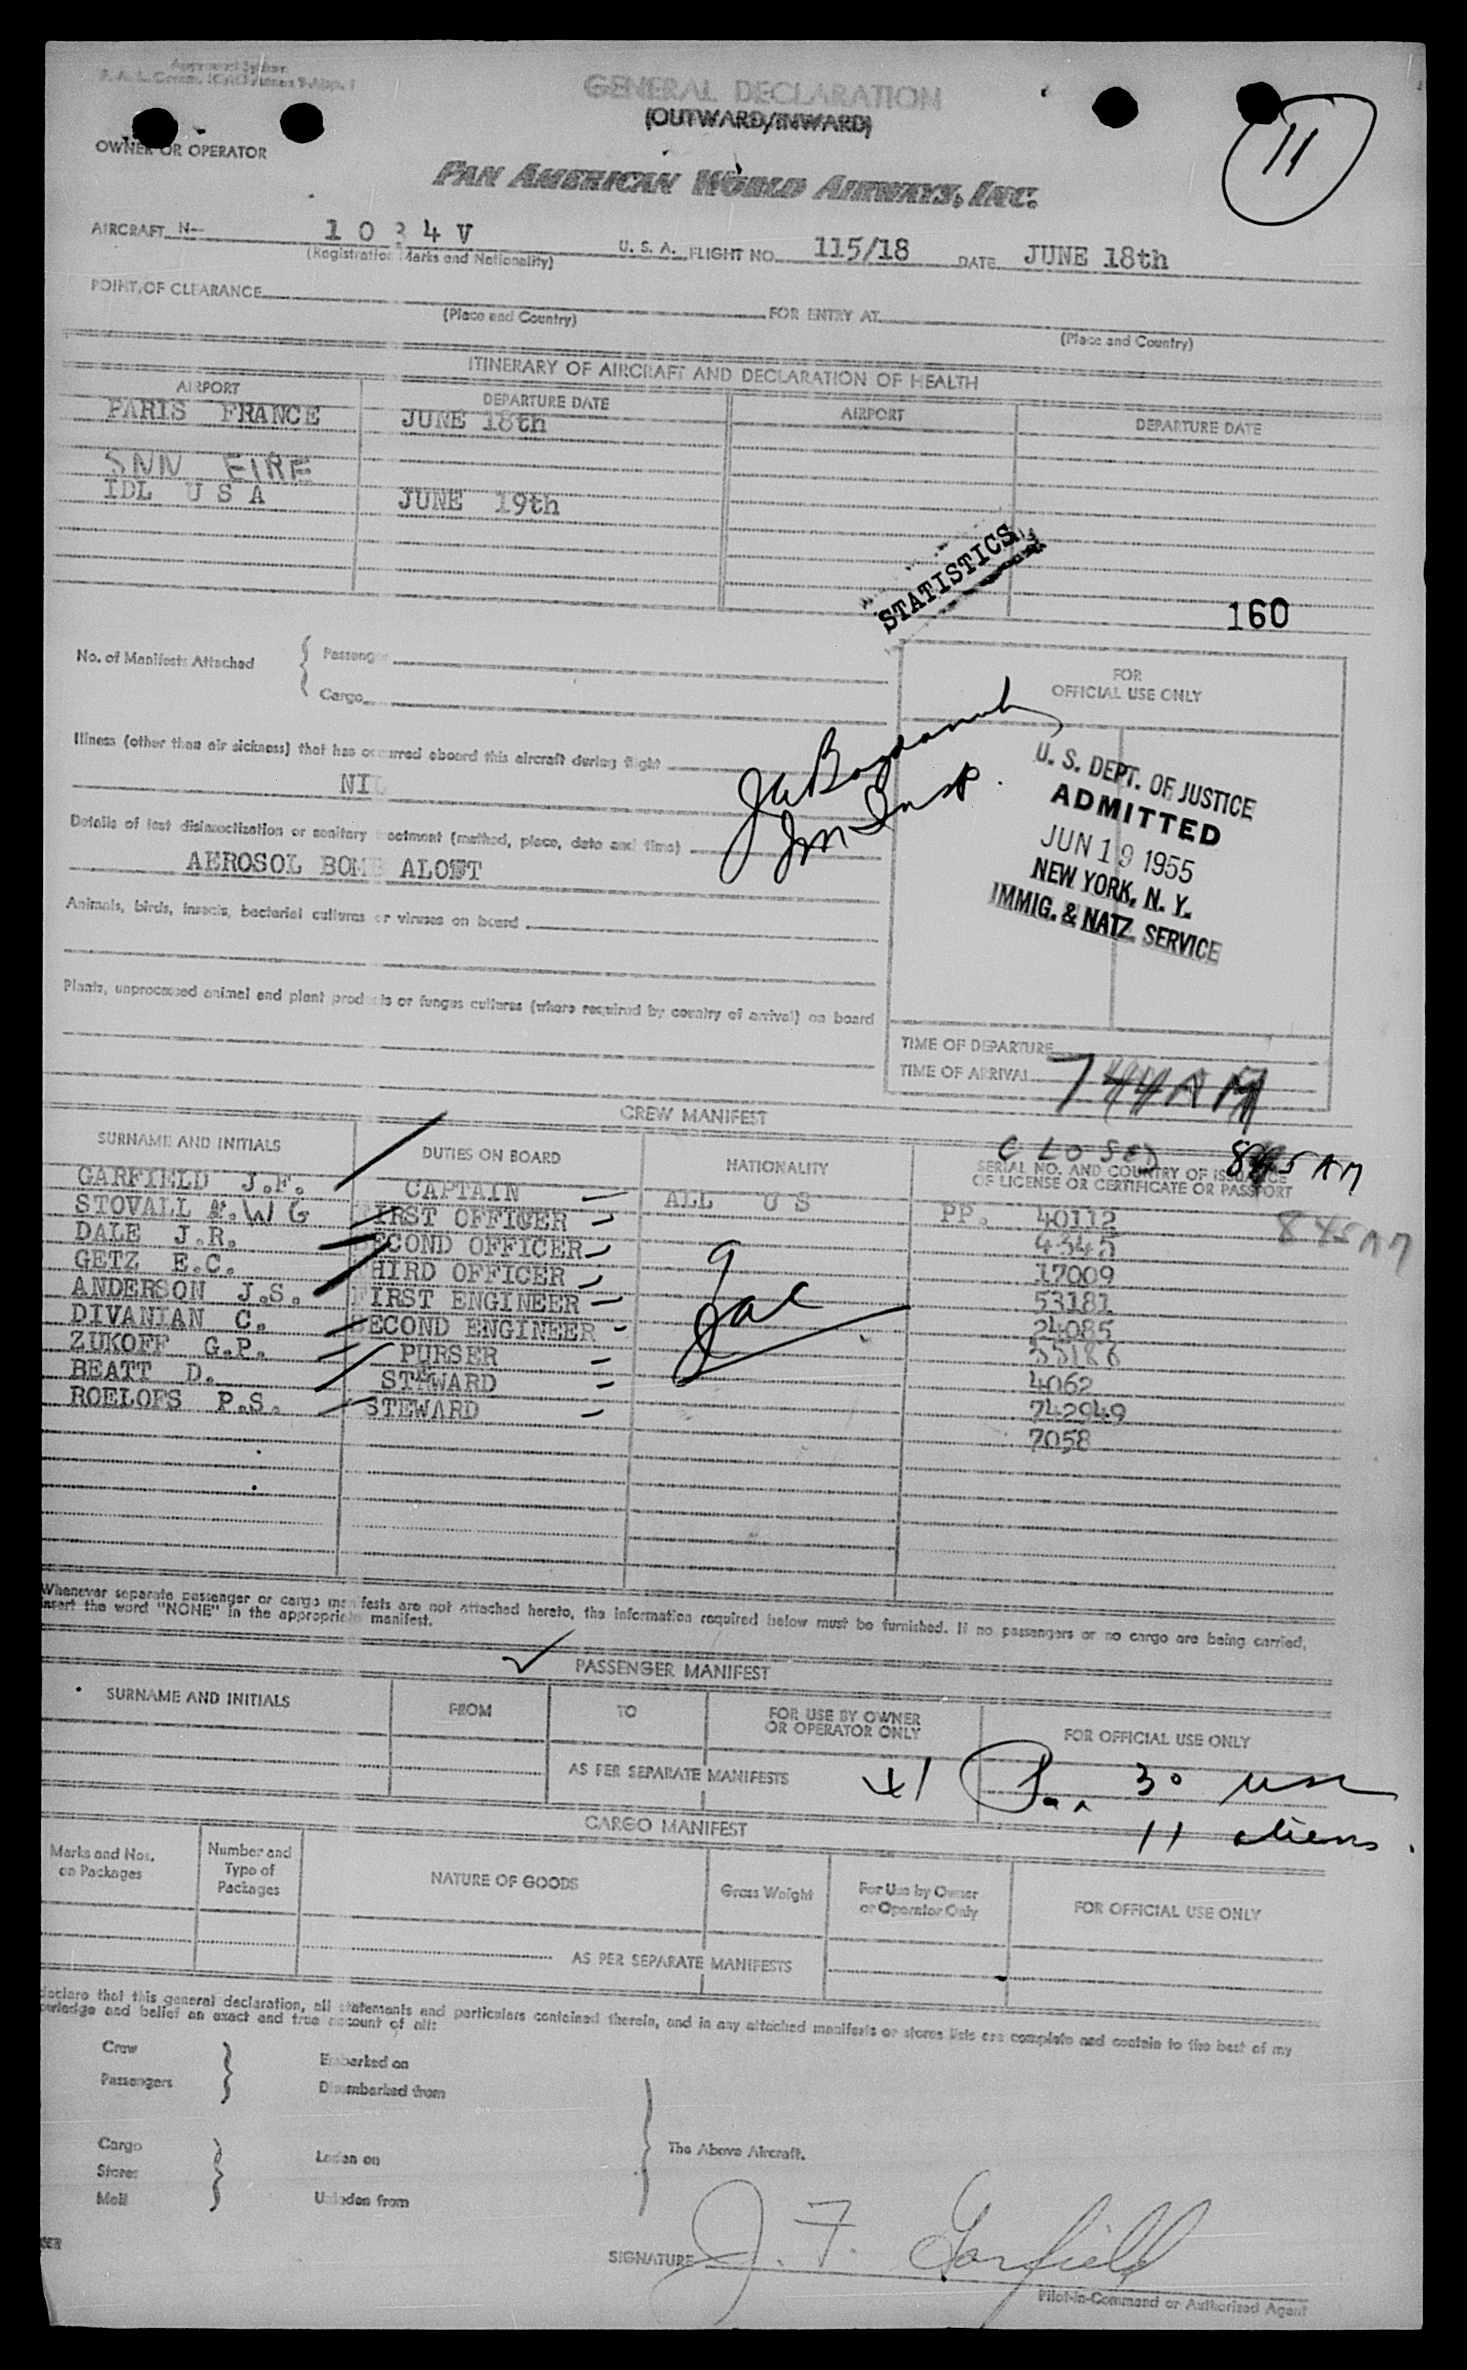 GENERAL DECLARATION
(OUTWARD/INWARD)
11
OWNER OR OPERATOR
PAN AMERICAN WORLD AIRWAYS, INC.
AIRCRAFT N- 10 4V U. S. A. FLIGHT NO. 115/18 DATE JUNE 18th
(Registration Marks and Nationality)
POINT OF CLEARANCE FOR ENTRY AT
(Place and Country) (Place and Country)
ITINERARY OF AIRCRAFT AND DECLARATION OF HEALTH
AIRPORT DEPARTURE DATE AIRPORT DEPARTURE DATE
PARIS FRANCE JUNE 18th
SNN EIRE
IDL U S A JUNE 19th
STATISTICS
160
No. of Manifests Attached { Passenger
Cargo
FOR
OFFICIAL USE ONLY
Illness (other than air sickness) that has occurred aboard this aircraft during flight
NIL
Im Insp.
U. S. DEPT. OF JUSTICE
ADMITTED
JUN 19 1955
NEW YORK, N. Y.
IMMIG. & NATZ. SERVICE
Details of last disinsectization or sanitary treatment (method, place, date and time)
AEROSOL BOMB ALOFT
Animals, birds, insects, bacterial cultures or viruses on board
Plants, unprocessed animal and plant products or fungus cultures (where required by country of arrival) on board
TIME OF DEPARTURE
TIME OF ARRIVAL 744AM
CREW MANIFEST
CLOSED 845AM
SURNAME AND INITIALS DUTIES ON BOARD NATIONALITY SERIAL NO. AND COUNTRY OF ISSUANCE
OF LICENSE OR CERTIFICATE OR PASSPORT
845AM
GARFIELD J.F. CAPTAIN ALL U S PP. 40112
STOVALL W G FIRST OFFICER 4345
DALE J.R. SECOND OFFICER 17009
GETZ E.C. THIRD OFFICER 53181
ANDERSON J.S. FIRST ENGINEER 24085
DIVANIAN C. SECOND ENGINEER 55186
ZUKOFF G.P. PURSER 4062
BEATT D. STEWARD 742949
ROELOFS P.S. STEWARD 7058
9
Whenever separate passenger or cargo manifests are not attached hereto, the information required below must be furnished. If no passengers or no cargo are being carried,
insert the word "NONE" in the appropriate manifest.
PASSENGER MANIFEST
SURNAME AND INITIALS FROM TO FOR USE BY OWNER
OR OPERATOR ONLY FOR OFFICIAL USE ONLY
AS PER SEPARATE MANIFESTS 41 Pax 30 usc
11 aliens.
CARGO MANIFEST
Marks and Nos.
on Packages Number and
Type of
Packages NATURE OF GOODS Gross Weight For Use by Owner
or Operator Only FOR OFFICIAL USE ONLY
AS PER SEPARATE MANIFESTS
declare that this general declaration, all statements and particulars contained therein, and in any attached manifests or stores lists are complete and contain to the best of my
knowledge and belief an exact and true account of all:
Crew Embarked on
Passengers Disembarked from
The Above Aircraft.
Cargo
Stores Laden on
Mail Unladen from
SIGNATURE J. F. Garfield
Pilot-in-Command or Authorized Agent